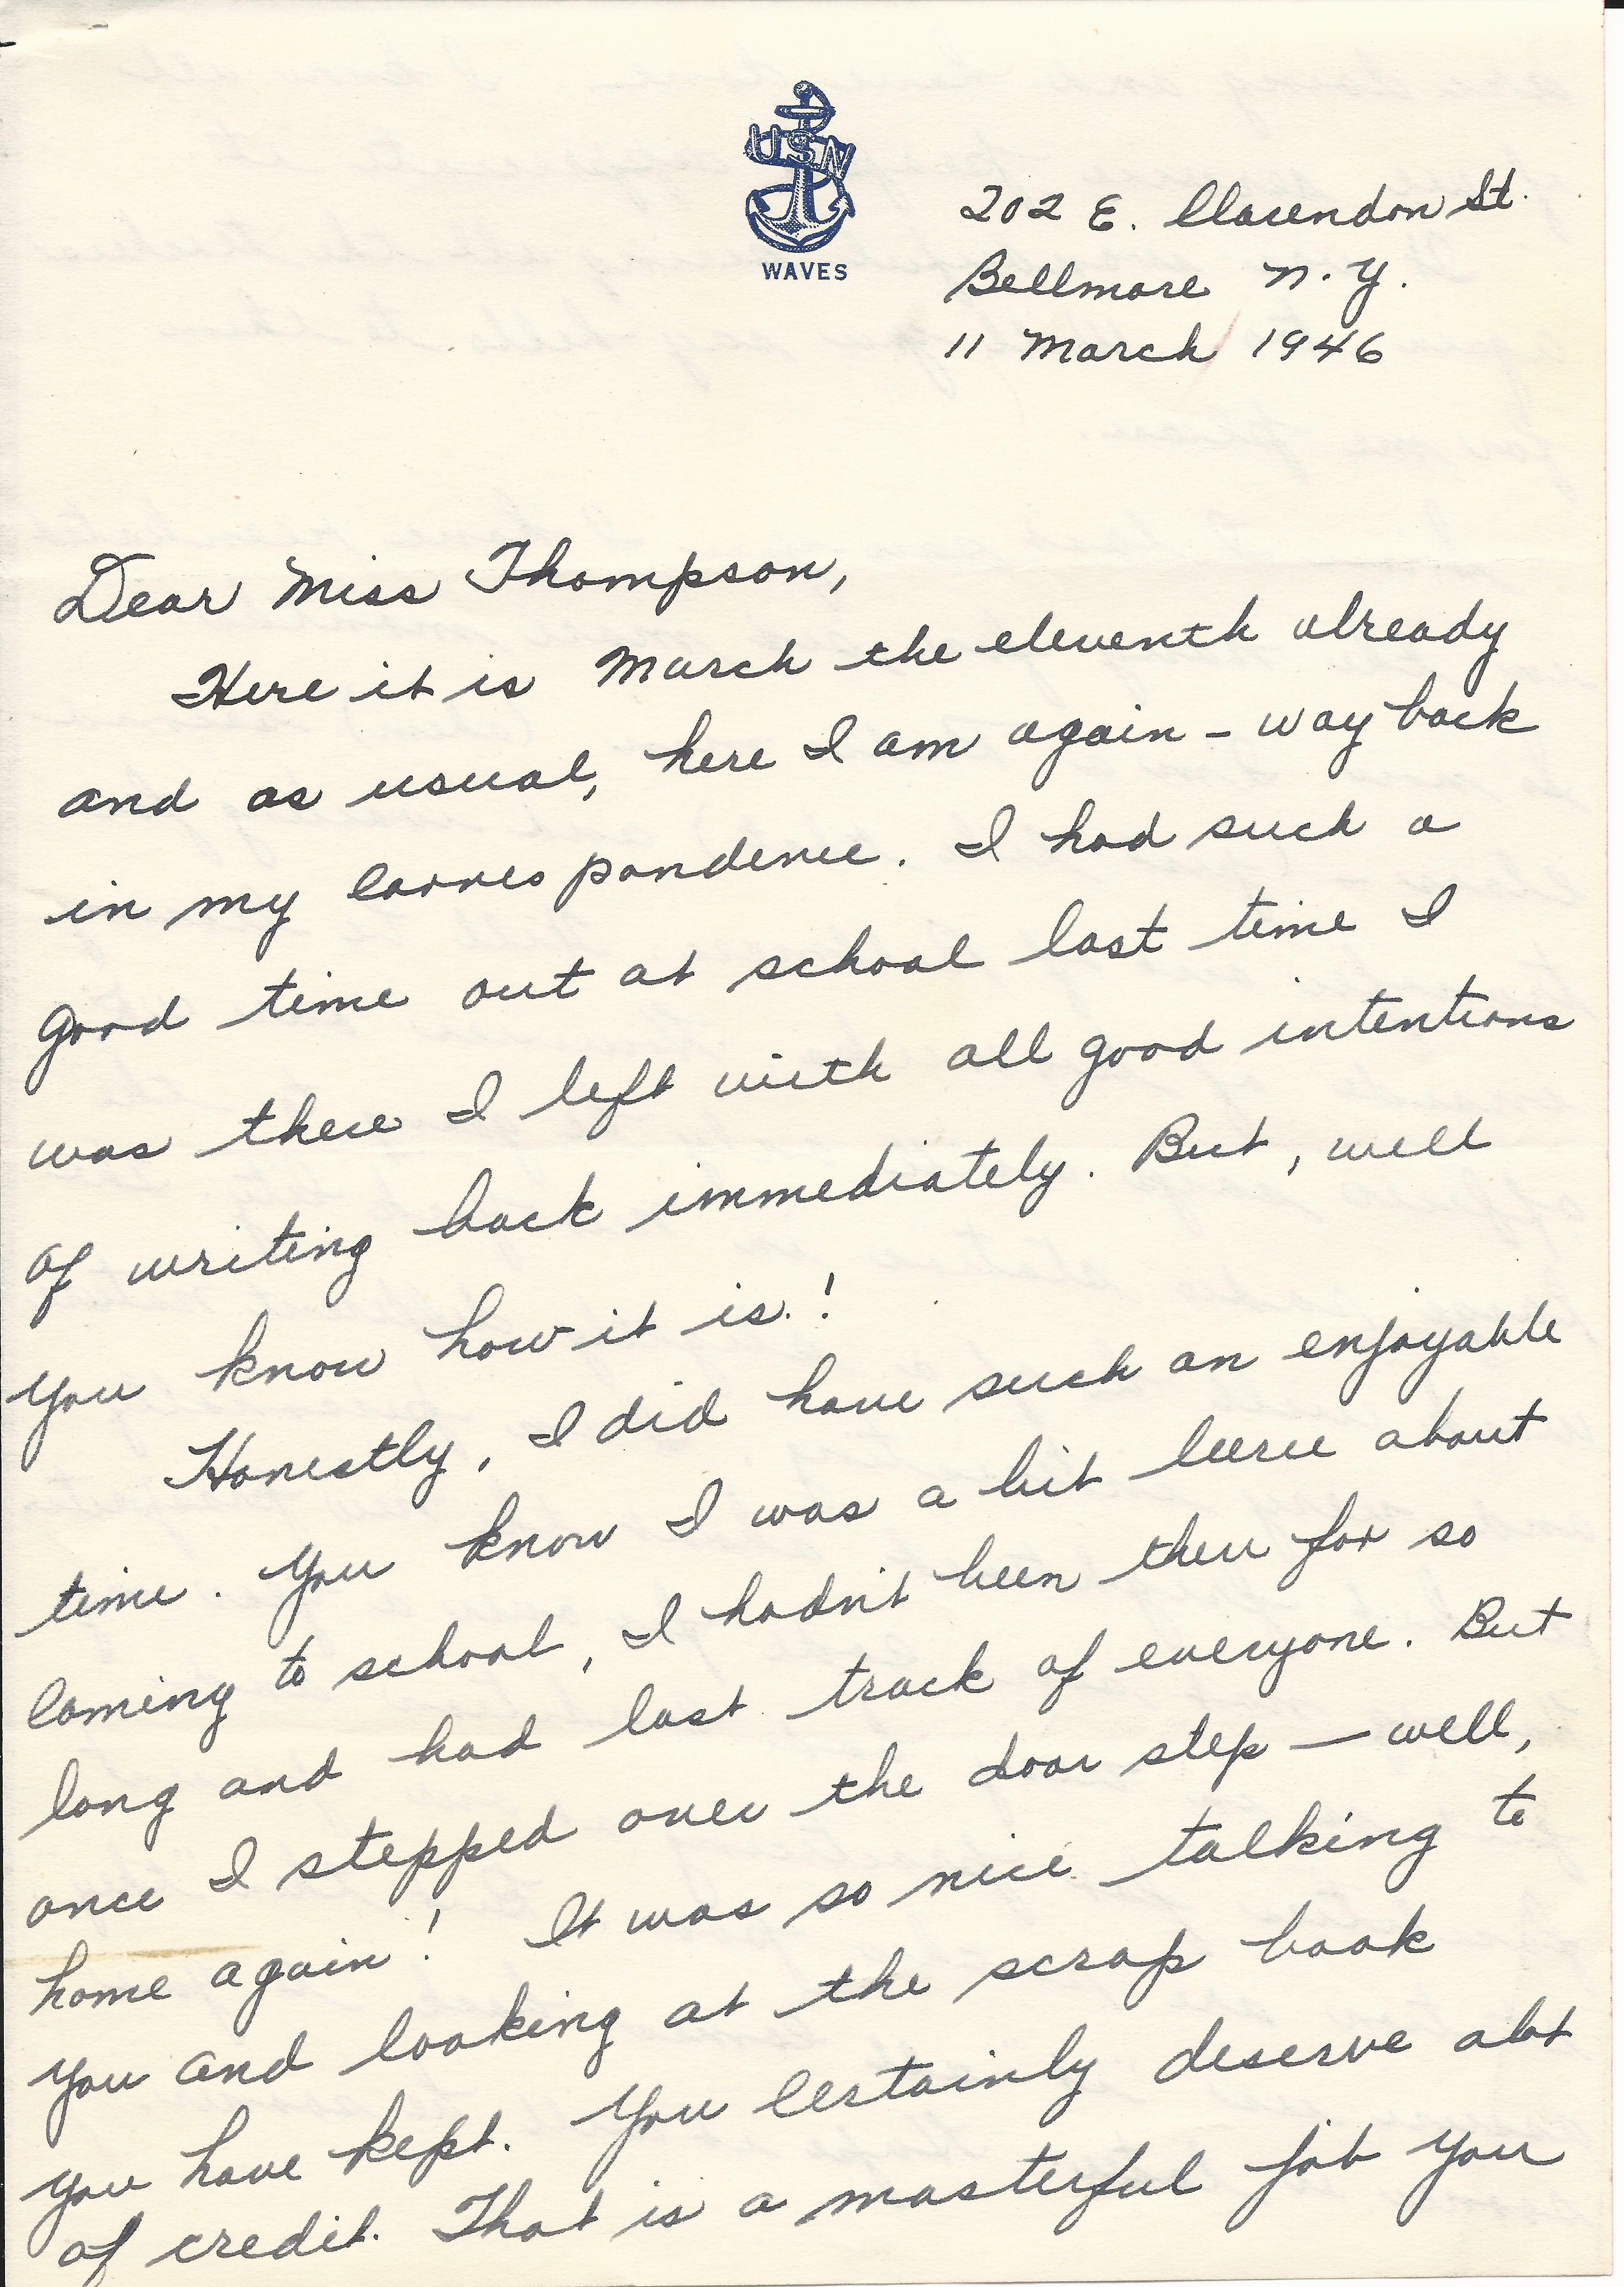 USN
WAVES
202 E. Clarendon St.
Bellmore N.Y.
11 March 1946
Dear Miss Thompson,
Here it is March the eleventh already
and as usual, here I am again - way back
in my correspondence. I had such a
good time out at school last time I
was there I left with all good intentions
of writing back immediately. But, well
you know how it is!
Honestly, I did have such an enjoyable
time. You know I was a bit leerie about
coming to school, I hadn't been there for so
long and had lost track of everyone. But
once I stepped over the door step — well,
home again! It was so nice talking to
you and looking at the scrap book
you have kept. You certainly deserve alot
of credit. That is a masterful job you